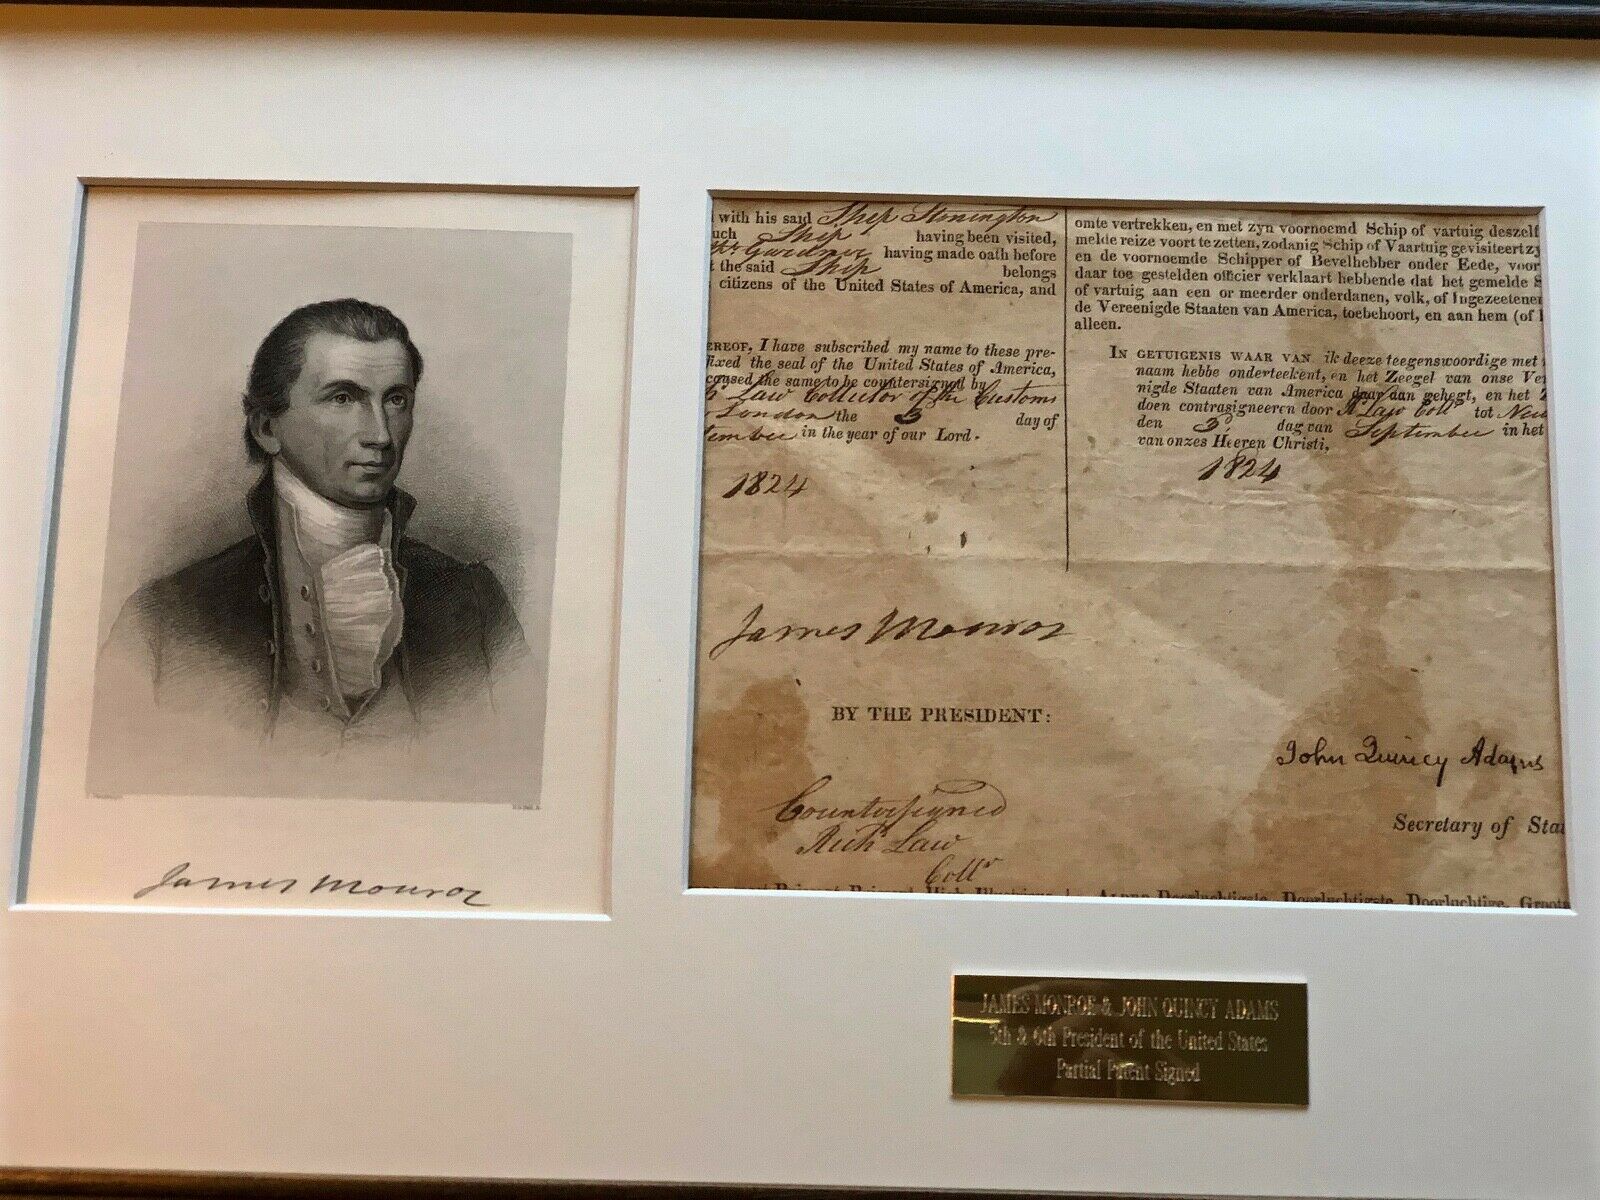 with his said Ship Stonington
Ship having been visited,
Gardner having made oath before
the said Ship belongs
citizens of the United States of America, and
EREOF, I have subscribed my name to these pre-
fixed the seal of the United States of America,
caused the same to be countersigned by
Law Collector of the Customs
London the 3 day of
tember in the year of our Lord.
1824
omte vertrekken, en met zyn voornoemd Schip of vartuig deszelf
melde reize voort te zetten, zodanig Schip of Vaartuig gevisiteert zy
en de voornoemde Schipper of Bevelhebber onder Eede, voor
daar toe gestelden officier verklaart hebbende dat het gemelde S
of vartuig aan een or meerder onderdanen, volk, of Ingezeetenen
de Vereenigde Staaten van America, toebehoort, en aan hem (of
alleen.
IN GETUIGENIS WAAR VAN ik deeze teegenswoordige met
naam hebbe onderteekent, en het Zeegel van onse Ve
nigde Staaten van America daar aan gehegt, en het
doen contrasigneeren door R Law Collr tot New
den 3 dag van September in het
van onzes Heeren Christi,
1824
James Monroe
BY THE PRESIDENT:
John Quincy Adams
Secretary of Stat
Countersigned
Richd Law
Collr
James Monroe
JAMES MONROE & JOHN QUINCY ADAMS
5th & 6th President of the United States
Partial Patent Signed